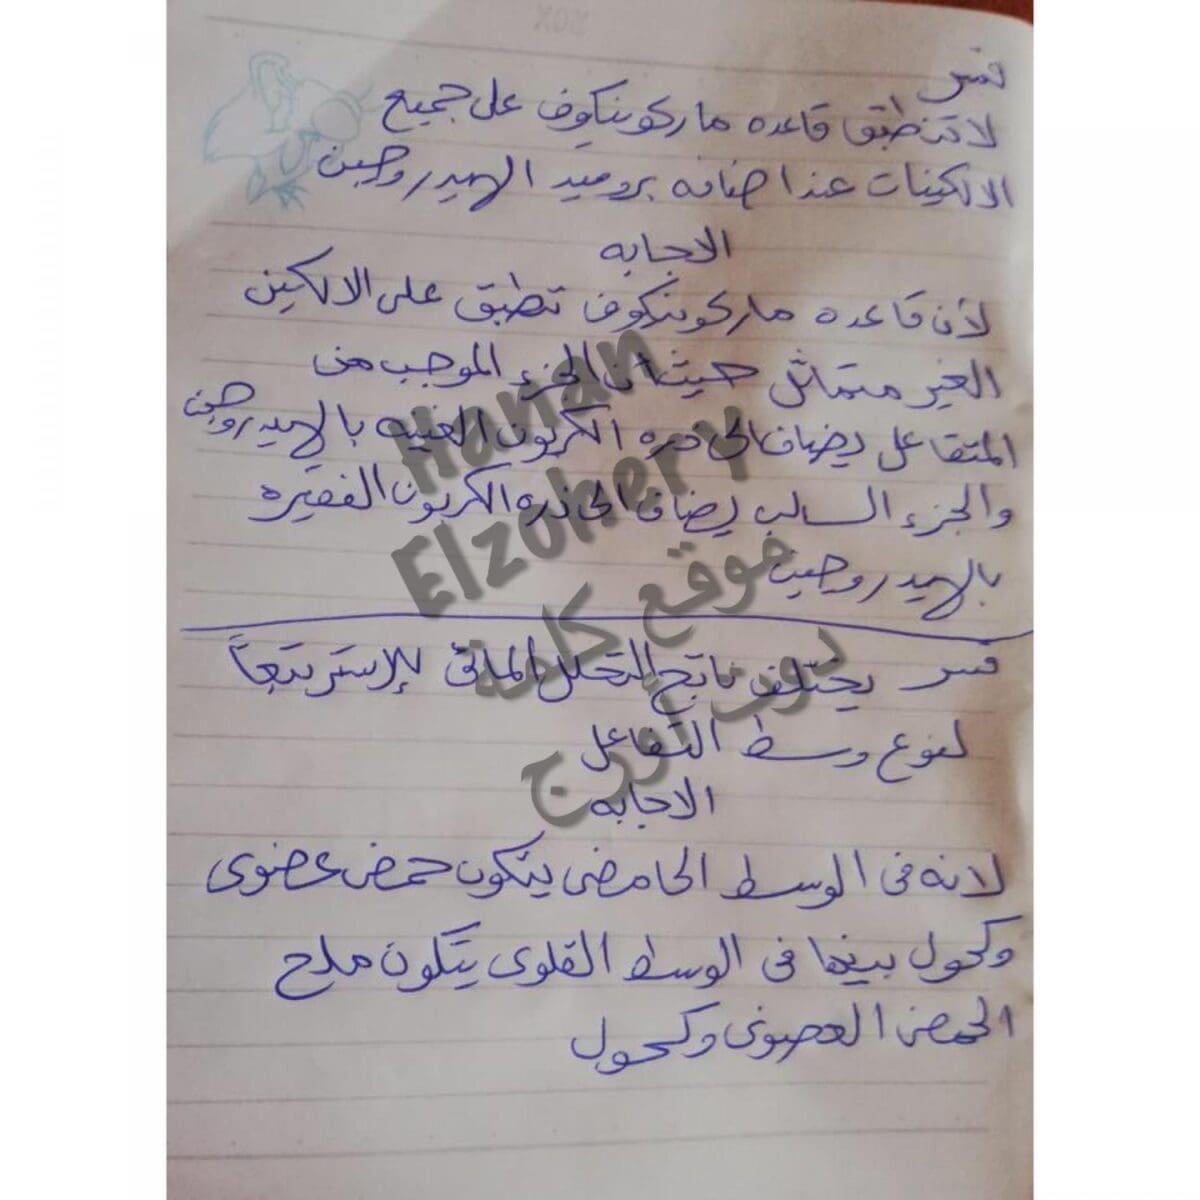 فسر
لا تنطبق قاعده ماركونيكوف على جميع
الالكينات عند اضافه بروميد الهيدروجين
الاجابه
لأن قاعده ماركونيكوف تطبق على الالكين
الغير متماثل حيث ان الجزء الموجب من
المتفاعل يضاف الى ذره الكربون الغنيه بالهيدروجين
والجزء السالب يضاف الى ذره الكربون الفقيره
بالهيدروجين
فسر يختلف ناتج التحلل المائى للإستر تبعاً
لنوع وسط التفاعل
الاجابه
لانه فى الوسط الحامضى يتكون حمض عضوى
وكحول بينما فى الوسط القلوى يتكون ملح
الحمض العضوى وكحول
Hanan
Elzohery
موقع كلمة
دوت أورج